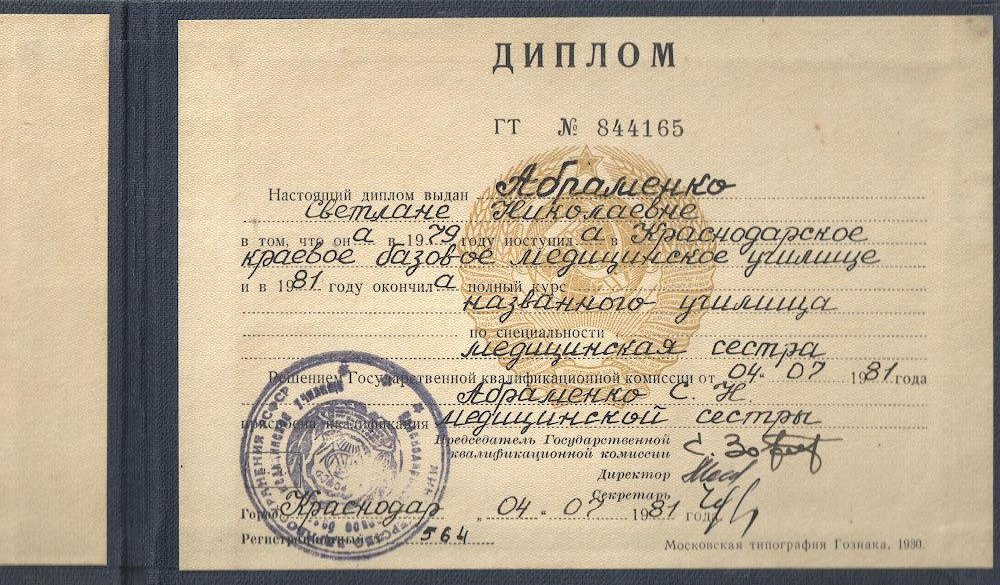 ДИПЛОМ
ГТ № 844165
Настоящий диплом выдан Абраменко
Светлане Николаевне
в том, что она в 1979 году поступила в Краснодарское
краевое базовое медицинское училище
и в 1981 году окончила полный курс
названного училища
по специальности
медицинская сестра
Решением Государственной квалификационной комиссии от 04 07 1981 года
Абраменко С. Н.
присвоена квалификация медицинской сестры
Председатель Государственной
квалификационной комиссии
Директор
Секретарь
Город Краснодар „04“ 07 1981 года.
Регистрационный № 564
Московская типография Гознака, 1980.